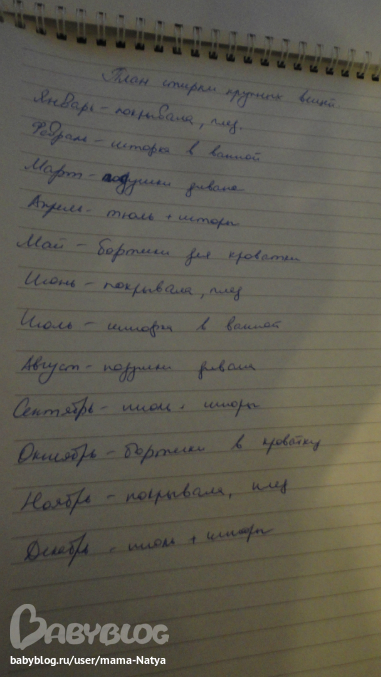 План стирки крупных вещей.
Январь – покрывала, плед.
Февраль – шторка в ванной
Март – подушки дивана
Апрель – тюль + шторы
Май – бортики для кроватки
Июнь – покрывала, плед
Июль – шторка в ванной
Август – подушки дивана
Сентябрь – тюль + шторы
Октябрь – бортики в кроватку
Ноябрь – покрывала, плед
Декабрь – тюль + шторы
BABYBLOG
babyblog.ru/user/mama-Natya